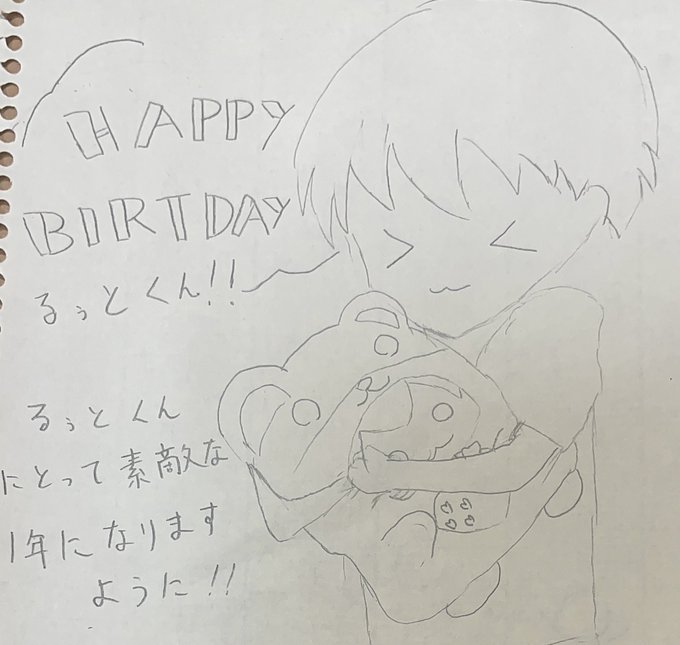 HAPPY
BIRTDAY
るぅとくん!!
るぅとくん
にとって素敵な
1年になります
ように!!